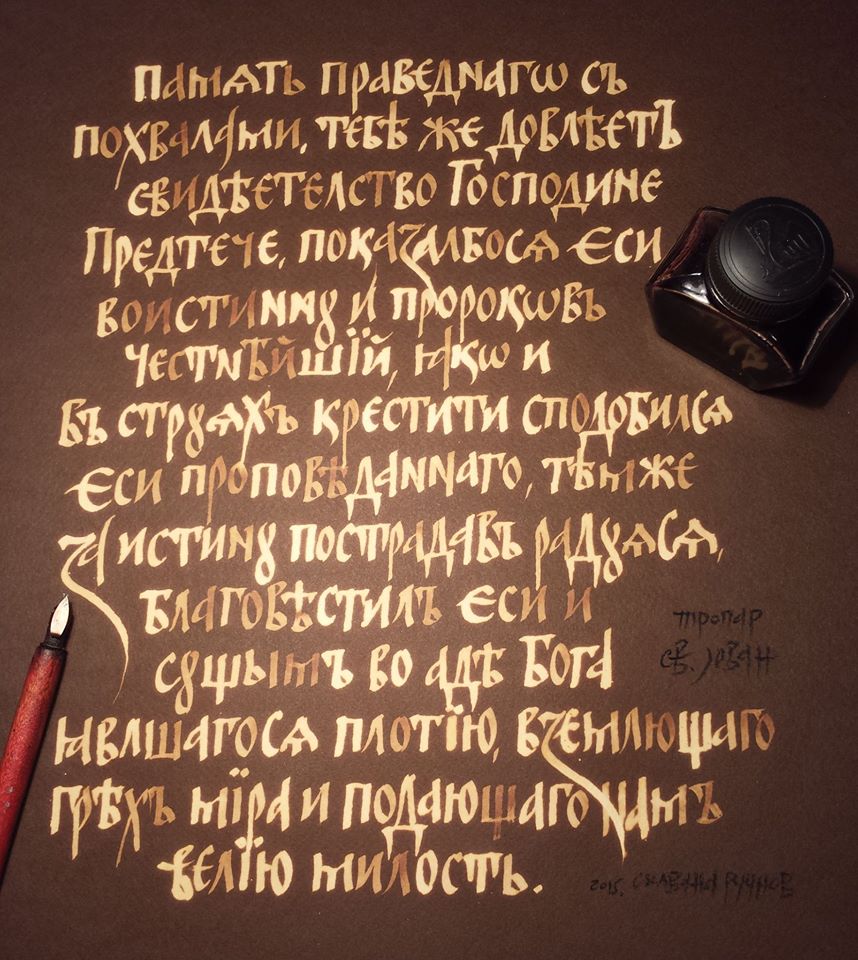 памѧть праведнагѡ съ
похвалами, тебѣ же довлѣетъ
свидѣетелство Господине
Предтече, показалбосѧ Єси
воистинну и пророкѡвъ
честнѣйшїй, ꙗкѡ и
въ струѧхъ крестити сподобилсѧ
Єси проповѣданнаго, тѣмже
за истину пострадавъ радуѧсѧ,
благовѣстилъ Єси и
сущымъ во адѣ Бога
ꙗвлшагосѧ плотїю, вземлющаго
грѣхъ мїра и подающаго намъ
велїю милость.
тропар
св. Јован
2015.